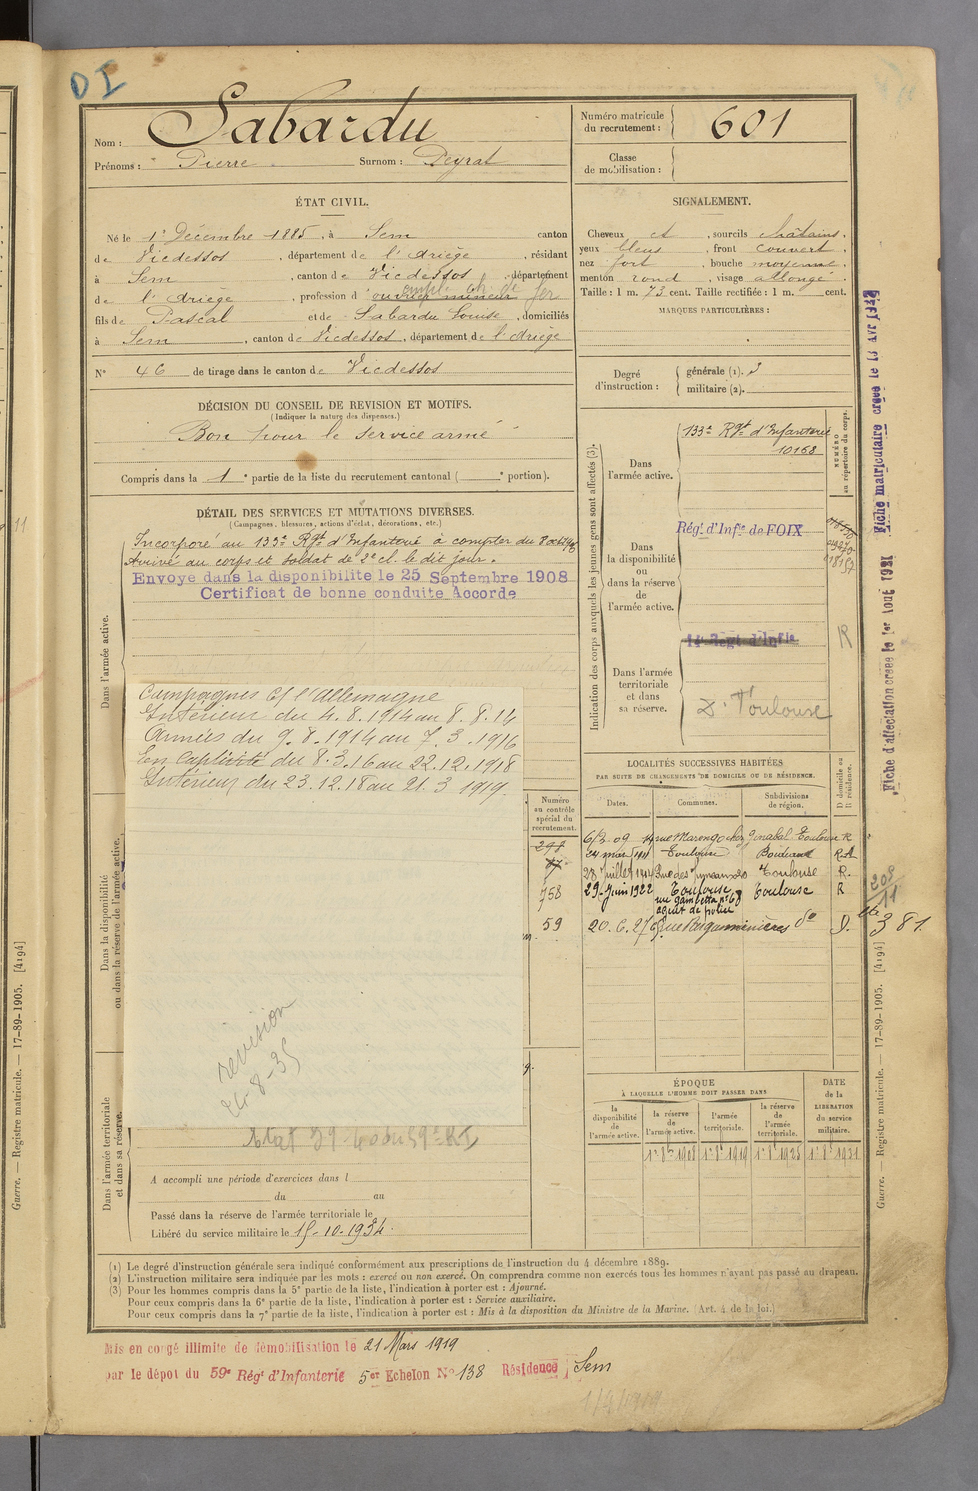 DI
Nom : Sabardu
Prénoms : Pierre Surnom : Peyrat
Numéro matricule du recrutement : 601
Classe de mobilisation :
ÉTAT CIVIL.
Né le 1er Décembre 1885, à Sem canton
de Vicdessos, département de l'Ariège, résidant
à Sem, canton de Vicdessos, département
de l'Ariège, profession d'ouvrier mineur
emplé ch. de fer
fils de Pascal et de Sabardu Louise, domiciliés
à Sem, canton de Vicdessos, département de l'Ariège
N° 46 de tirage dans le canton de Vicdessos
SIGNALEMENT.
Cheveux et, sourcils châtains,
yeux bleus, front couvert,
nez fort, bouche moyenne,
menton rond, visage allongé.
Taille : 1 m. 73 cent. Taille rectifiée : 1 m. cent.
MARQUES PARTICULIÈRES :
Degré d'instruction : générale (1). 3
militaire (2).
DÉCISION DU CONSEIL DE REVISION ET MOTIFS.
(Indiquer la nature des dispenses.)
Bon pour le service armé
Compris dans la 1e partie de la liste du recrutement cantonal ( e portion).
DÉTAIL DES SERVICES ET MUTATIONS DIVERSES.
(Campagnes, blessures, actions d'éclat, décorations, etc.)
Dans l'armée active.
Incorporé au 133e Rgt d'Infanterie à compter du 8
Arrivé au corps et soldat de 2e cl. le dit jour.
Envoye dans la disponibilite le 25 Septembre 1908
Certificat de bonne conduite Accorde
Campagnes C/ l'Allemagne
Intérieur du 4.8.1914 au 8.8.14
Armées du 9.8.1914 au 7.3.1916
En captivité du 8.3.16 au 22.12.1918
Intérieur du 23.12.18 au 21.3.1919.
Dans la disponibilité ou dans la réserve de l'armée active.
revision
24-8-35
Dans l'armée territoriale et dans sa réserve.
A accompli une période d'exercices dans l
du au
Passé dans la réserve de l'armée territoriale le
Libéré du service militaire le 15-10-1934.
Numéro au contrôle spécial du recrutement.
298
758
59
Indication des corps auxquels les jeunes gens sont affectés (3).
NUMÉRO au répertoire du corps.
Dans l'armée active.
133e Rgt d'Infanterie
10168
Dans la disponibilité ou dans la réserve de l'armée active.
Rég.t d'Inf.ie de FOIX
Dans l'armée territoriale et dans sa réserve.
14e Regt d'Infie
R
D.t Toulouse
LOCALITÉS SUCCESSIVES HABITÉES
PAR SUITE DE CHANGEMENTS DE DOMICILE OU DE RÉSIDENCE.
Dates. Communes. Subdivisions de région. D domicile ou R résidence.
6/3 09 rue Marengo chez Gonabal Toulouse R
24 mars 1911 Toulouse Bordeaux R.A
28 Juillet 1914 Toulouse R.
29 Juin 1922 Toulouse Toulouse R
rue Gambetta n° 68
agent de police
20.6.27 do D.
208
11
381
ÉPOQUE
À LAQUELLE L'HOMME DOIT PASSER DANS
la disponibilité de l'armée active.
la réserve de l'armée active.
l'armée territoriale.
la réserve de l'armée territoriale.
DATE de la LIBÉRATION du service militaire.
1er 8bre 1908 1er 8bre 1919 1er 8bre 1925 1er 8bre 1931
Fiche matriculaire créée le 13 Avr 1927
Fiche d'affectation créée le 1er Août 1921
Guerre. — Registre matricule. — 17-89-1905. [4194]
Guerre. — Registre matricule. — 17-89-1905. [4194]
(1) Le degré d'instruction générale sera indiqué conformément aux prescriptions de l'instruction du 4 décembre 1889.
(2) L'instruction militaire sera indiquée par les mots : exercé ou non exercé. On comprendra comme non exercés tous les hommes n'ayant pas passé au drapeau.
(3) Pour les hommes compris dans la 5e partie de la liste, l'indication à porter est : Ajourné.
Pour ceux compris dans la 6e partie de la liste, l'indication à porter est : Service auxiliaire.
Pour ceux compris dans la 7e partie de la liste, l'indication à porter est : Mis à la disposition du Ministre de la Marine. (Art. 4 de la loi.)
Mis en congé illimité de démobilisation le 21 Mars 1919
par le dépot du 59e Rég.t d'Infanterie 5er Echelon N° 138 Résidence Sem
1/4/1919